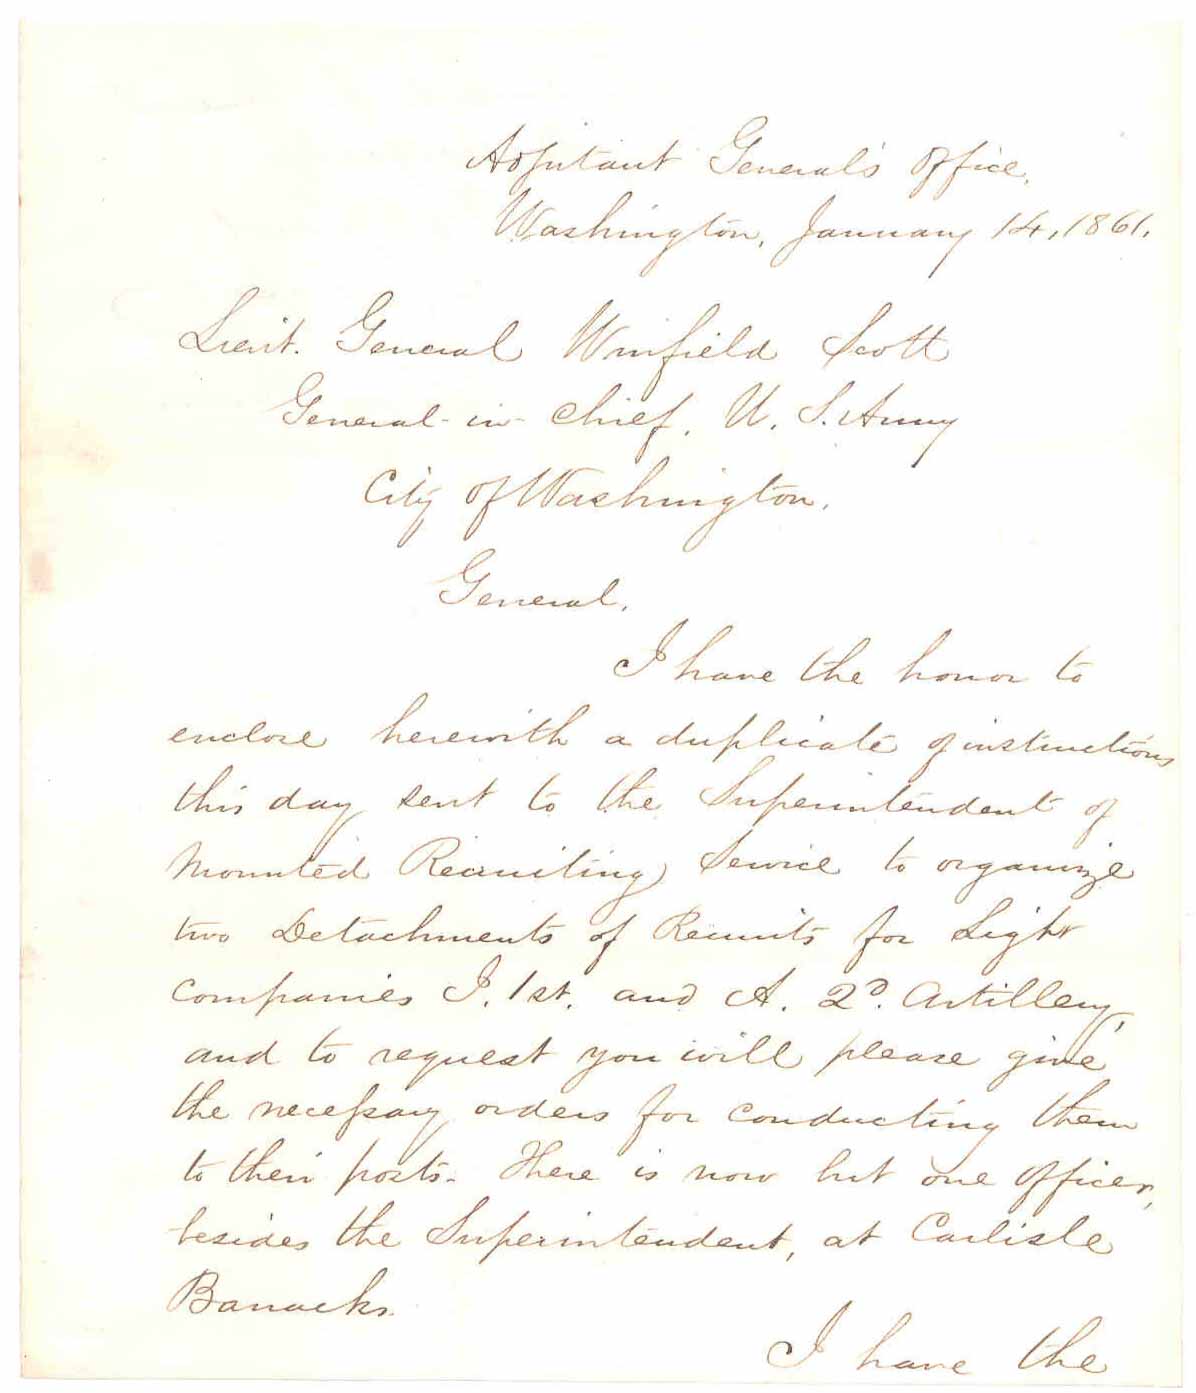 Adjutant General's Office,
Washington, January 14, 1861.
Lieut. General Winfield Scott
General-in-chief, U. S. Army
City of Washington.
General,
I have the honor to
enclose herewith a duplicate of instructions
this day sent to the Superintendent of
Mounted Recruiting Service to organize
two Detachments of Recruits for Light
companies I. 1st. and A. 2d. Artillery,
and to request you will please give
the necessary orders for conducting them
to their posts. There is now but one officer,
besides the Superintendent, at Carlisle
Barracks.
I have the